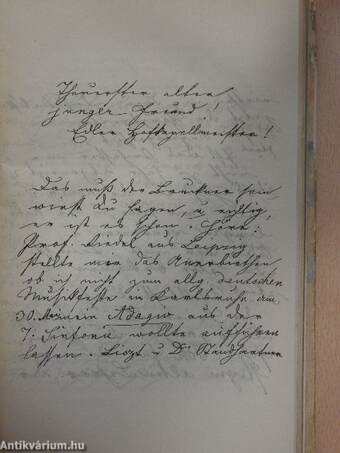 Theuerster alter
junger Freund!
Edler Hofkapellmeister!
Das muß der Bruckner sein,
wirst du sagen, u richtig,
er ist es schon. Hört:
Prof. Riedel aus Leipzig
stellte mir das Anerbiethen,
ob ich nicht zum allg. deutschen
Musikfeste in Karlsruhe am
30. Mai mein Adagio aus der
7. Sinfonie wollte aufführen
lassen. Liszt u Dr Standhartner
Antikvárium.hu